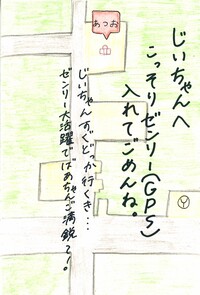 あつお
じいちゃんへ
こっそりゼンリー(GPS)
入れてごめんね。
じいちゃんすぐどっか行くき…
ゼンリー大活躍でばあちゃんご満鋭です!